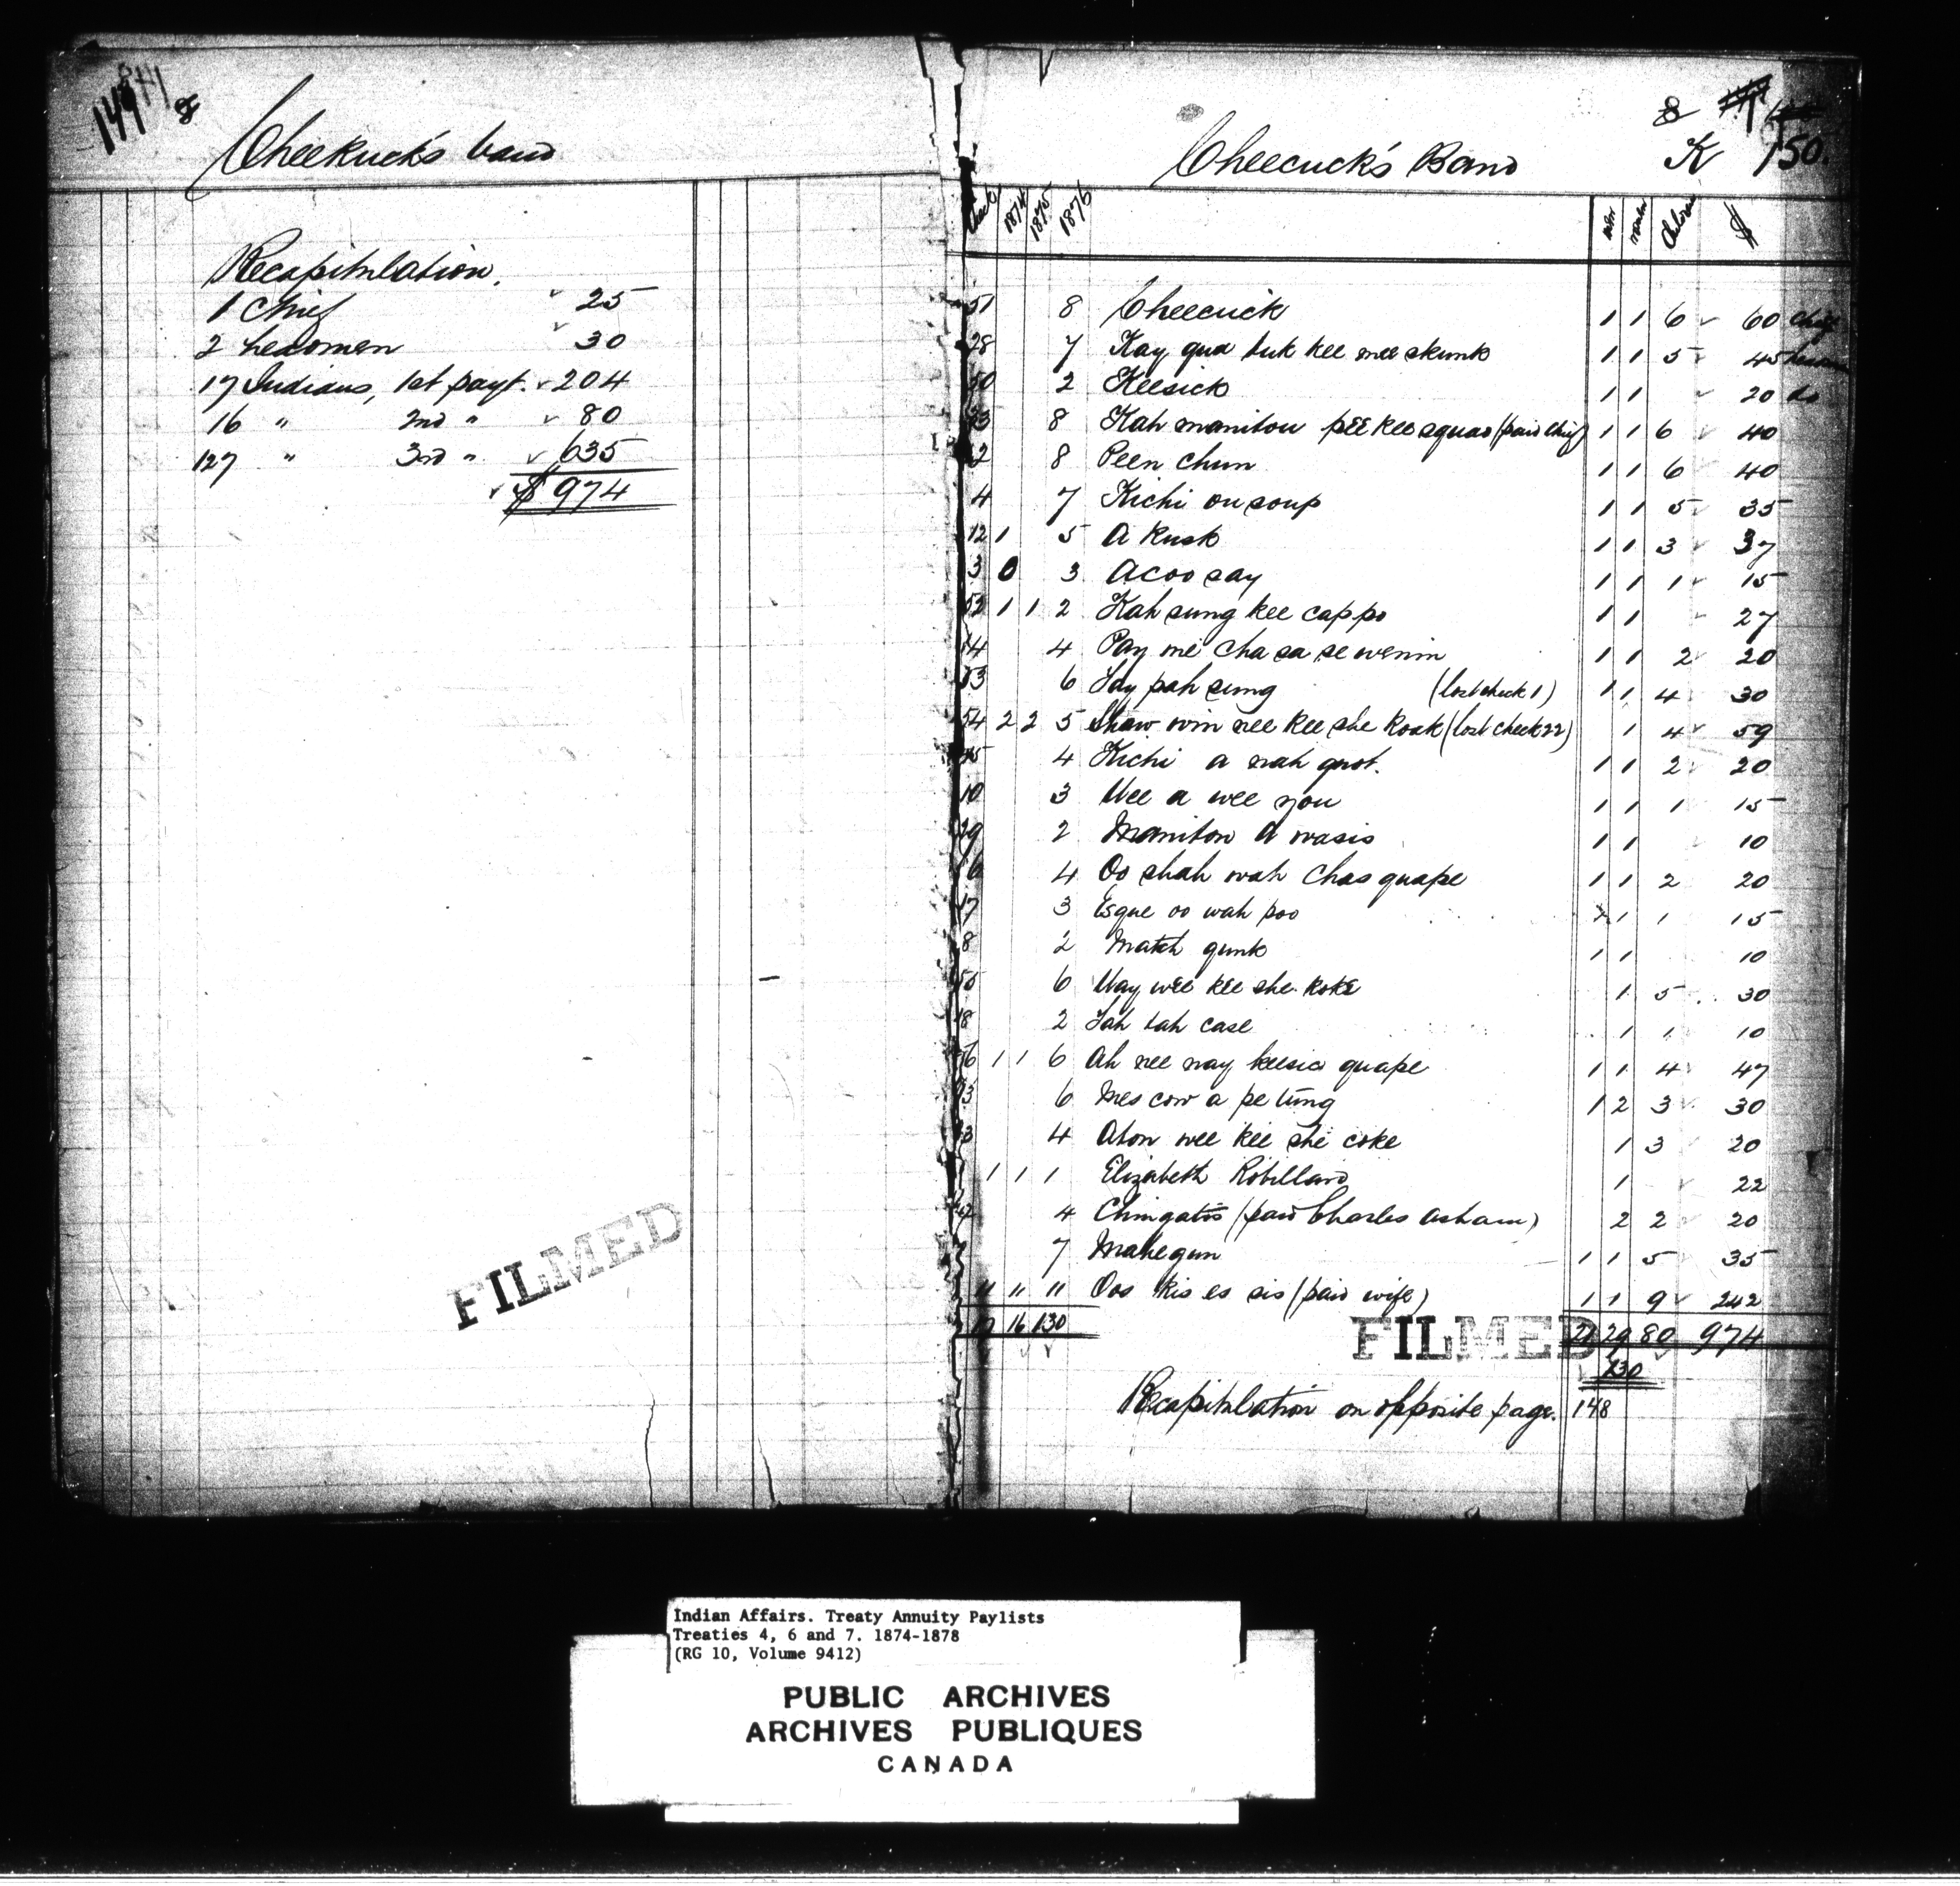 149
Cheekuck's band
Recapitulation.
1 Chief 25
2 headmen 30
17 Indians, 1st payt. 204
16 " 2nd " 80
127 " 3rd " 635
$974
FILMED
8
K 150.
Cheecuck's Band
check 1874 1875 1876 men women children $
51 8 Cheecuck 1 1 6 60 chief
28 7 Kay qua tuk kee mee skunk 1 1 5 45 headman
50 2 Keesick 1 1 20 do
8 Kah manitou pee kee squao (paid chief) 1 1 6 40
8 Peen chun 1 1 6 40
4 7 Kichi ou soup 1 1 5 35
12 1 5 A Kusk 1 1 3 37
3 0 3 Acoo say 1 1 1 15
52 1 1 2 Kah sung kee cappo 1 1 27
14 4 Pay me cha sa se wenin 1 1 2 20
53 6 Tay pah sung (lost check 1) 1 1 4 30
54 2 2 5 Shaw win nee kee she koak (lost check 22) 1 4 59
4 Kichi a nah quot. 1 1 2 20
10 3 Wee a wee you 1 1 1 15
29 2 Manitou A wasis 1 1 10
6 4 Oo shah wah chas quape 1 1 2 20
17 3 Esque oo wah poo 1 1 15
8 2 Match gunk 1 1 10
55 6 Way wee kee she koke 1 5 30
18 2 Tah tah case 1 1 10
56 1 1 6 Ah nee nay keesic quape 1 1 4 47
6 Mes cow a pe tung 1 2 3 30
4 Aton wee kee she coke 1 3 20
1 1 1 Elizabeth Robillard 1 22
4 Chingatis (paid Charles Asham) 2 2 20
7 Mahegun 1 1 5 35
11 11 11 Oos kis es sis (paid wife) 1 1 9 242
17 16 130 21 29 80 974
130
FILMED
Recapitulation on opposite page. 148
Indian Affairs. Treaty Annuity Paylists
Treaties 4, 6 and 7. 1874-1878
(RG 10, Volume 9412)
PUBLIC ARCHIVES
ARCHIVES PUBLIQUES
CANADA